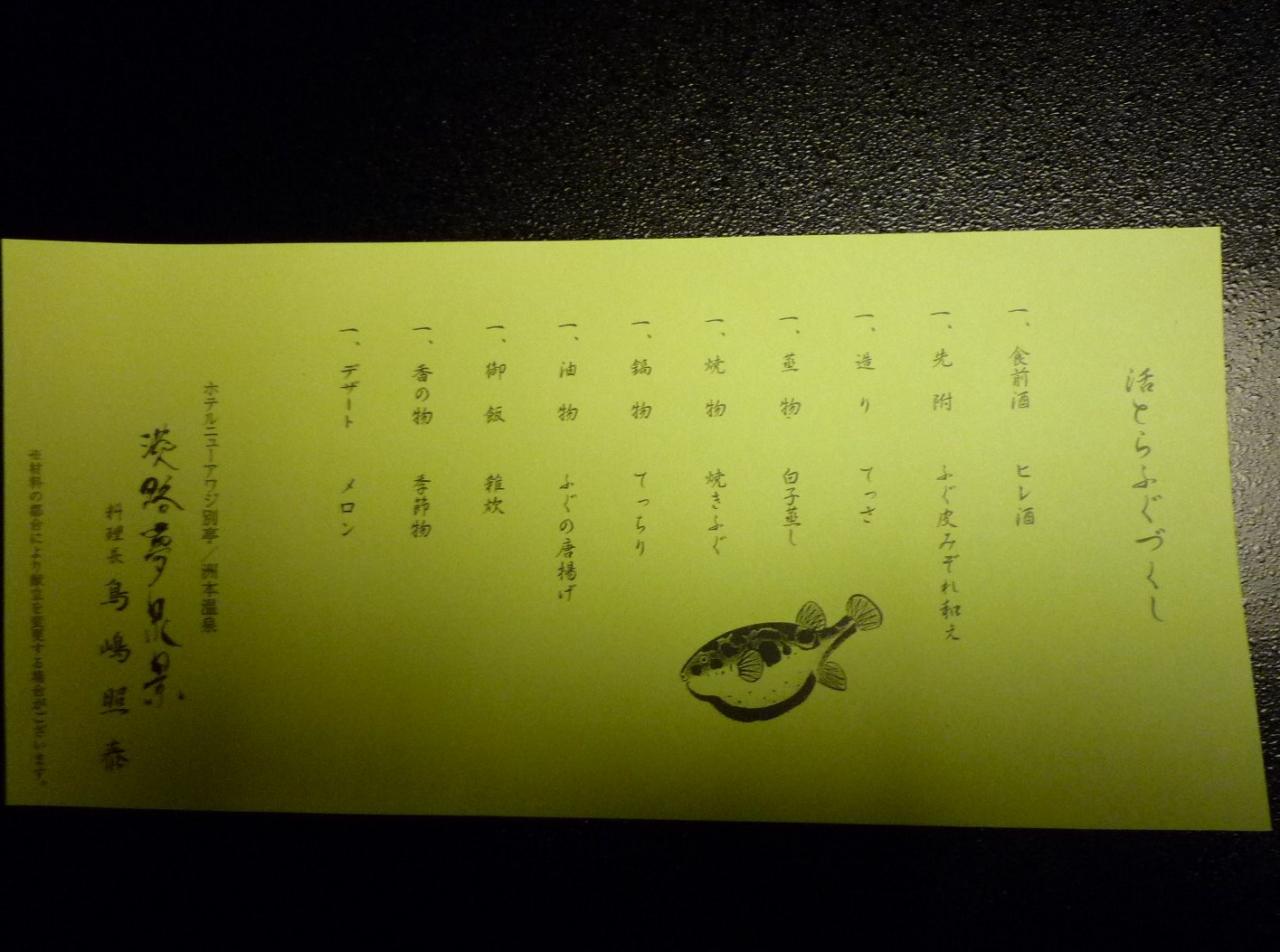 活とらふぐづくし
一、食前酒 ヒレ酒
一、先附 ふぐ皮みぞれ和え
一、造り てっさ
一、蒸物 白子蒸し
一、焼物 焼きふぐ
一、鍋物 てっちり
一、油物 ふぐの唐揚げ
一、御飯 雑炊
一、香の物 季節物
一、デザート メロン
ホテルニューアワジ別亭/洲本温泉
淡路夢泉景
料理長 鳥嶋照泰
※材料の都合により献立を変更する場合がございます。